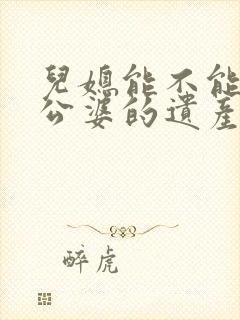 兒媳能不能
公婆的遺產
醉虎